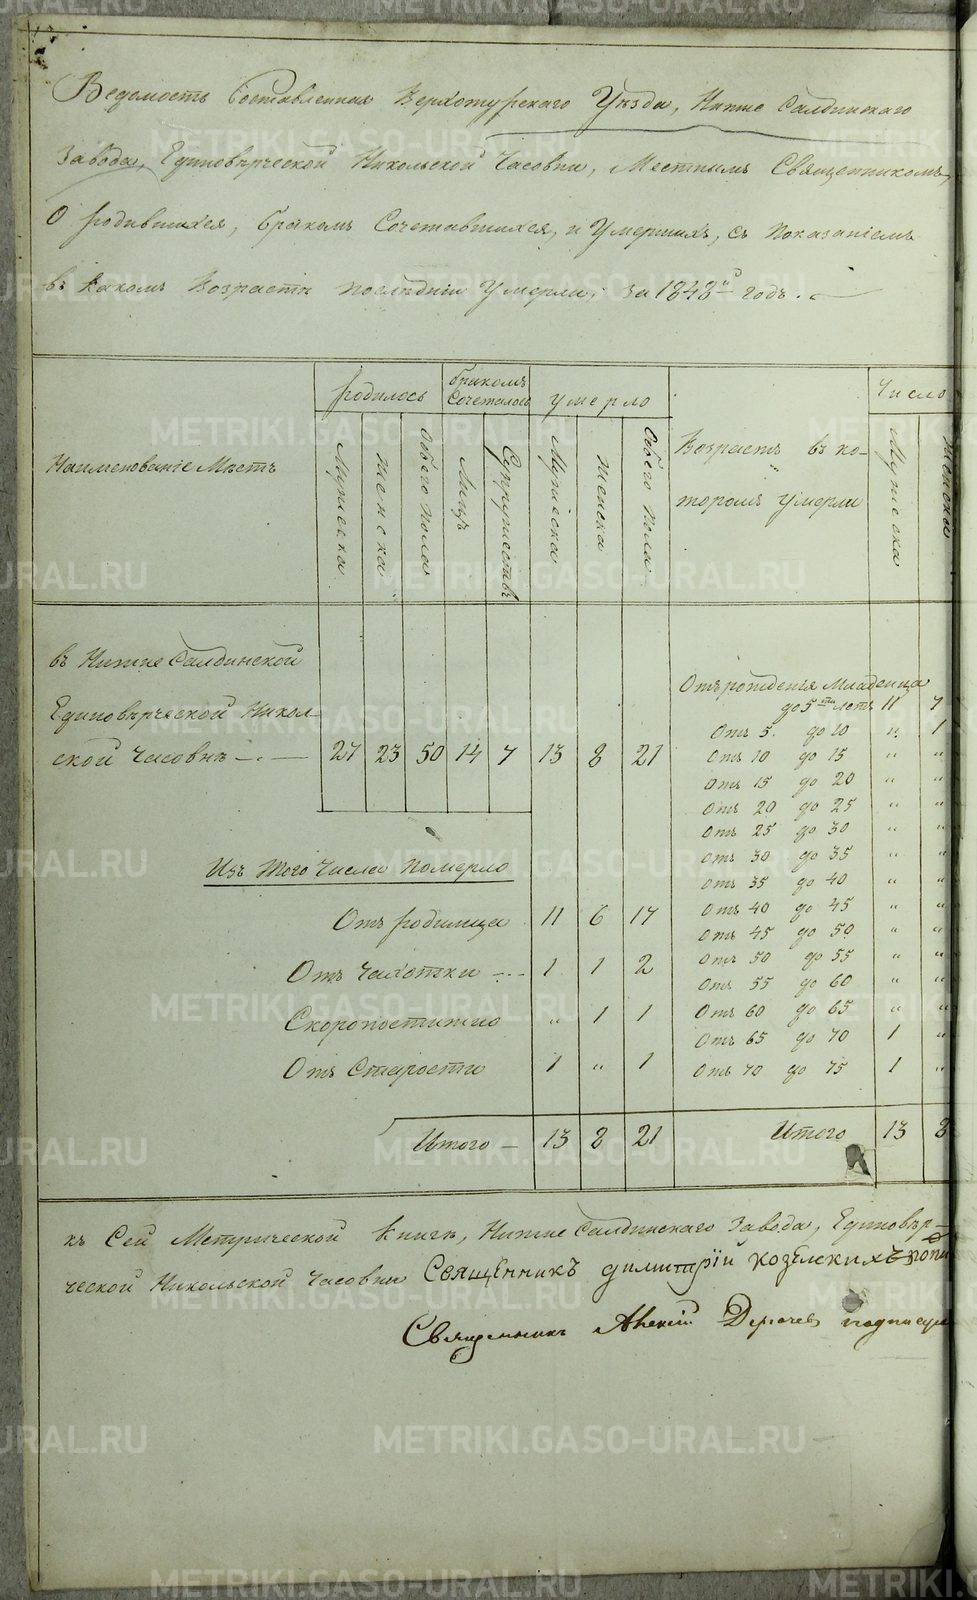 Ведомость Составленная Верхотурскаго Уѣзда, Нижне Салдинскаго
Завода, Единовѣрческой Никольской Часовни, Местнымъ Священникомъ,
О родившихся, бракомъ Сочетавшихся, и Умершихъ, съ показаніемъ
въ какомъ Возрастѣ последніи Умерли, за 1848й годъ.
Наименованіе Мѣстъ
родилось
бракомъ Сочеталось
умерло
Возрастъ въ котороmъ умерли
Число
Мужеска
Женска
Обѣего пола
Лицъ
Супружествъ
Мужеска
Женска
Обѣего пола
Мужеска
Женска
въ Нижне Салдинской
Единовѣрческой Николь
ской Часовнѣ 27 23 50 14 7 13 8 21
Отъ рожденія Младенца
до 5ти летъ 11 7
Отъ 5. до 10 „ 1
Отъ 10 до 15 „ „
Отъ 15 до 20 „ „
Отъ 20 до 25 „ „
Отъ 25 до 30 „ „
Отъ 30 до 35 „ „
Отъ 35 до 40 „ „
Отъ 40 до 45 „ „
Отъ 45 до 50 „ „
Отъ 50 до 55 „ „
Отъ 55 до 60 „ „
Отъ 60 до 65 „ „
Отъ 65 до 70 1 „
Отъ 70 до 75 1 „
Итого 13 8
Изъ того числа померло
Отъ родимца 11 6 17
Отъ Чахотки 1 1 2
Скоропостижно „ 1 1
Отъ Старости 1 „ 1
Итого 13 8 21
къ Сей Метрической Книгѣ, Нижне Салдинскаго Завода, Единовѣр-
ческой Никольской Часовни Священникъ димитрiй козелскихъ
Священникъ Алексій подписуе
METRIKI.GASO-URAL.RU